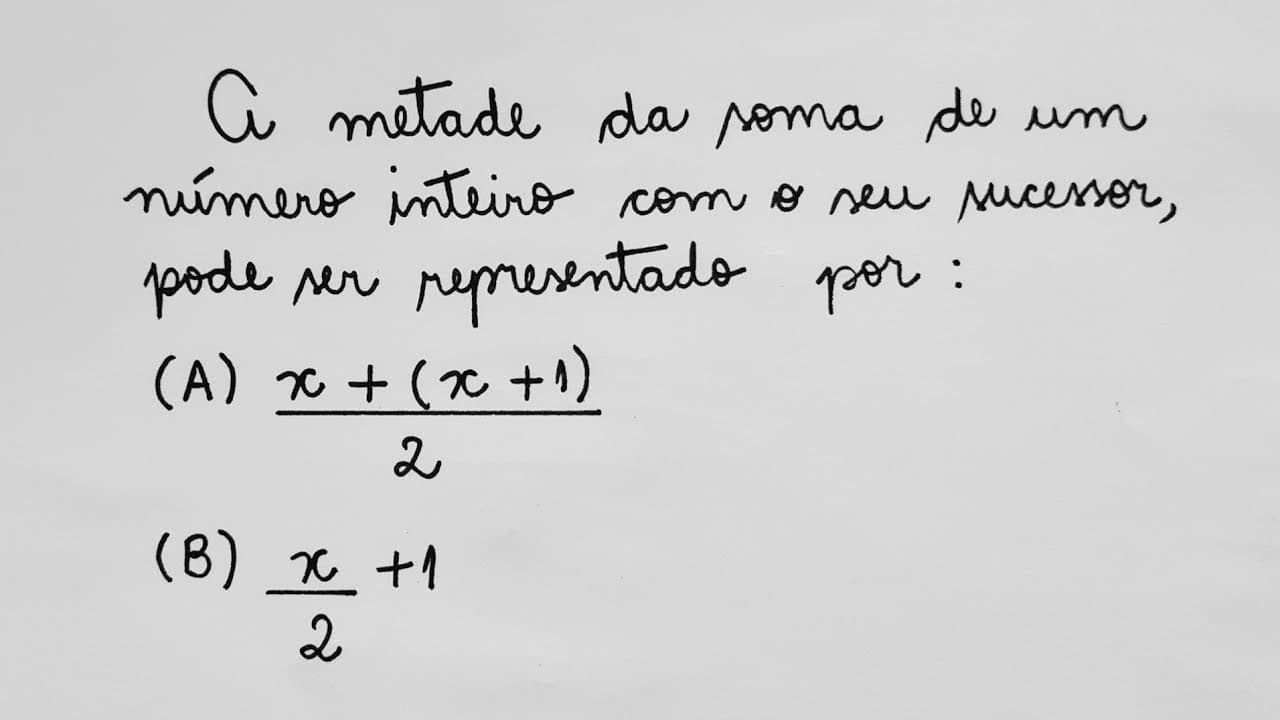 A metade da soma de um
número inteiro com o seu sucessor,
pode ser representado por:
(A) x + (x + 1)
2
(B) x + 1
2